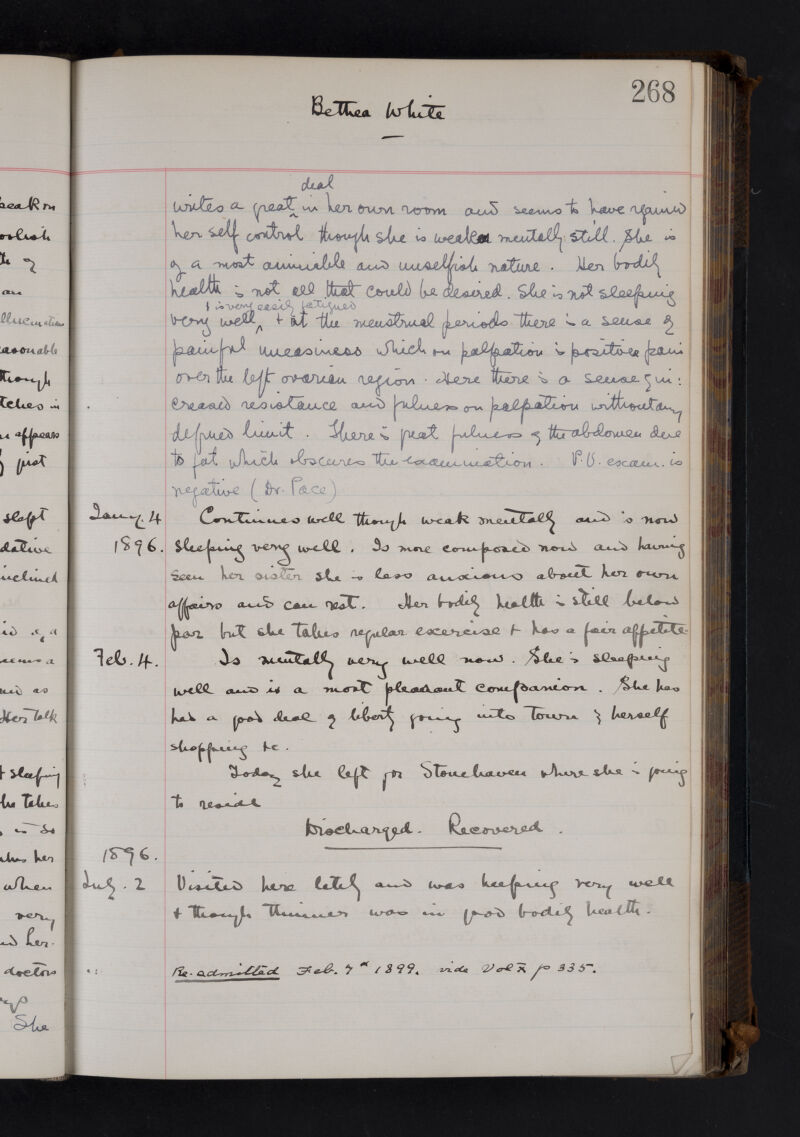 268
Bethea White
deal
writes a great ^ in her own room and seems to have regained
her self control though she is weak mentally still. She is
of a most amiable and unselfish nature. Her bodily
health is not all that could be desired. She is not sleeping
+ is very easily fatigued
very well ^ + at the menstrual periods there is a sense of
painful uneasiness which on palpation is positive pain
over the left ovarian region. Here there is a sense of in:
creased resistance and fulness on palpation without any
defined limit. There is great fulness of the abdomen due
to fat which obscures the examination. P.V. exam. is
negative (Dr. Pace)
Jany. 4 Continues well though weak mentally and is now
1896. sleeping very well. Is more composed now and having
seen her sister she is less anxious about her own
affairs and can rest. Her bodily health is still below
par but she takes regular exercise + has a fair appetite
Feb. 4. Is mentally very well now. She is sleeping
well and is a most pleasant companion. She has
had a good deal of liberty going into town by herself
shopping &c.
Today she left for Stonehaven where she is going
to reside
Discharged. Recovered.
1896.
July. 2 Visited here lately and was keeping very well
+ though thinner was in good bodily health.
Re-admitted Feb. 7th 1899. vide Vol X p 335.
peak on
foolish
an
reasonable
though
appears
slept
dative
inclined
as
Her talk
+ sleeping
she takes
her
when
very
her.
doctors
She